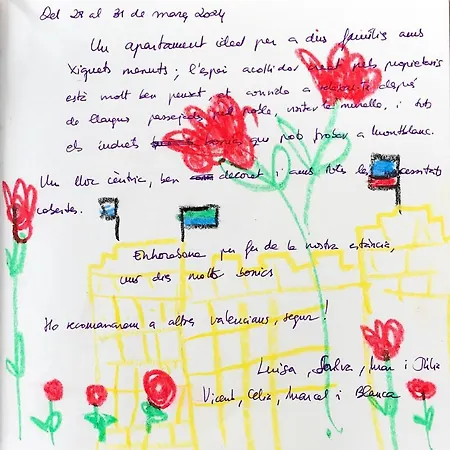 Del 28 al 31 de març 2024
Un apartament ideal per a dos famílies amb
xiquets menuts; l'espai acollidor creat pels propietaris
està molt ben pensat et convida a relaxar-te després
de llargues passejades pel poble, visitar la muralla, i tots
els indrets bonics que pots trobar a Montblanc.
Un lloc cèntric, ben decorat i amb totes les necessitats
cobertes.
Enhorabona per fer de la nostra estància,
uns dies molts bonics
Ho recomanarem a altres valencians, segur!
Luisa, Mar i Júlia
Vicent, Celia, Marcel i Blanca